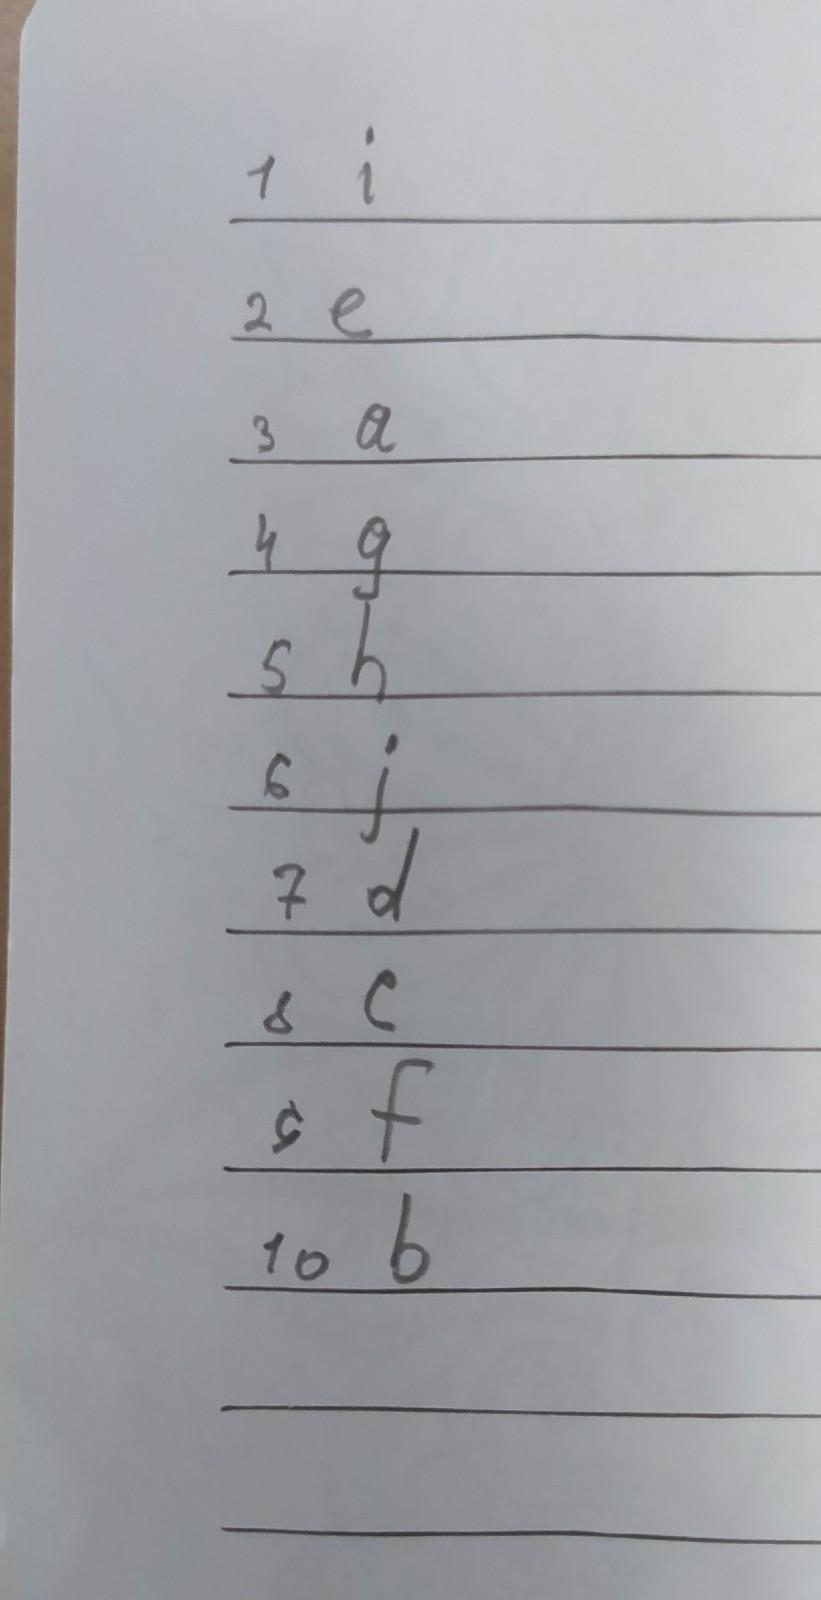 1 i
2 e
3 a
4 g
5 h
6 j
7 d
8 c
9 f
10 b